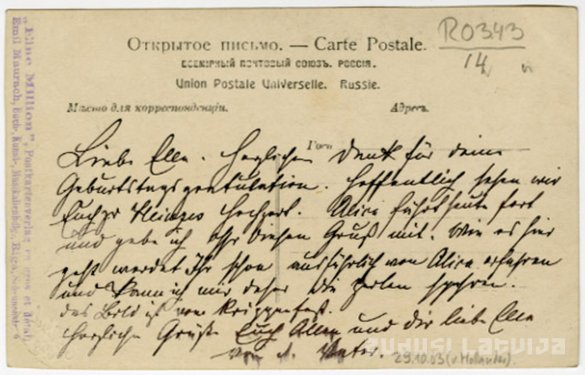 R0343
14
Открытое письмо. — Carte Postale.
ВСЕМІРНЫЙ ПОЧТОВЫЙ СОЮЗЪ. РОССІЯ.
Union Postale Universelle. Russie.
Мѣсто для корреспонденціи.
Адресъ.
"Eine Million", Postkartenverlag en gros et détail,
Emil Maurach, Buch-, Kunst-, Musikalienhdlg., Riga,
Liebe Ella. Herzlichen Dank für deine
Geburtstagsgratulation. Hoffentlich sehen wir
Euch zu Heinzes Hochzeit. Alice fährt heute fort
und gebe ich Ihr diesen Gruß mit. Wie es hier
geht werdet Ihr schon ausführlich von Alice erfahren
und kann ich mir daher die Zeilen sparen.
das Bild ist vom Krippenfest.
Herzliche Grüße Euch Allen und dir liebe Ella
von d. Vater.
29.10.03 (v. Hollander)
ZUDUSI LATVIJA